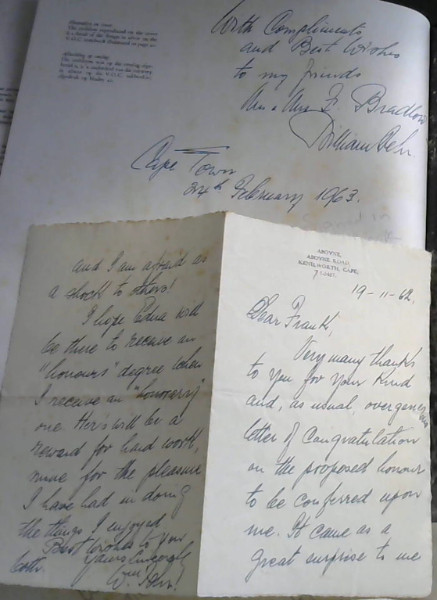 With Compliments
and Best Wishes
to my friends
Mr & Mrs F. Bradlow
William Fehr.
Cape Town
24th February 1963.
ABOYNE,
ABOYNE ROAD,
KENILWORTH, CAPE.
19-11-62.
Dear Frank,
Very many thanks
to you for your kind
and, as usual, overgenerous
letter of congratulation
on the proposed honour
to be conferred upon
me. It came as a
great surprise to me
and I am afraid as
a shock to others!
I hope Edna will
be there to receive an
"honours" degree when
I receive an "honorary"
one. Her's will be a
reward for hard work,
mine for the pleasure
I have had in doing
the things I enjoyed.
Best wishes to you
both.
Yours sincerely
Wm Fehr.